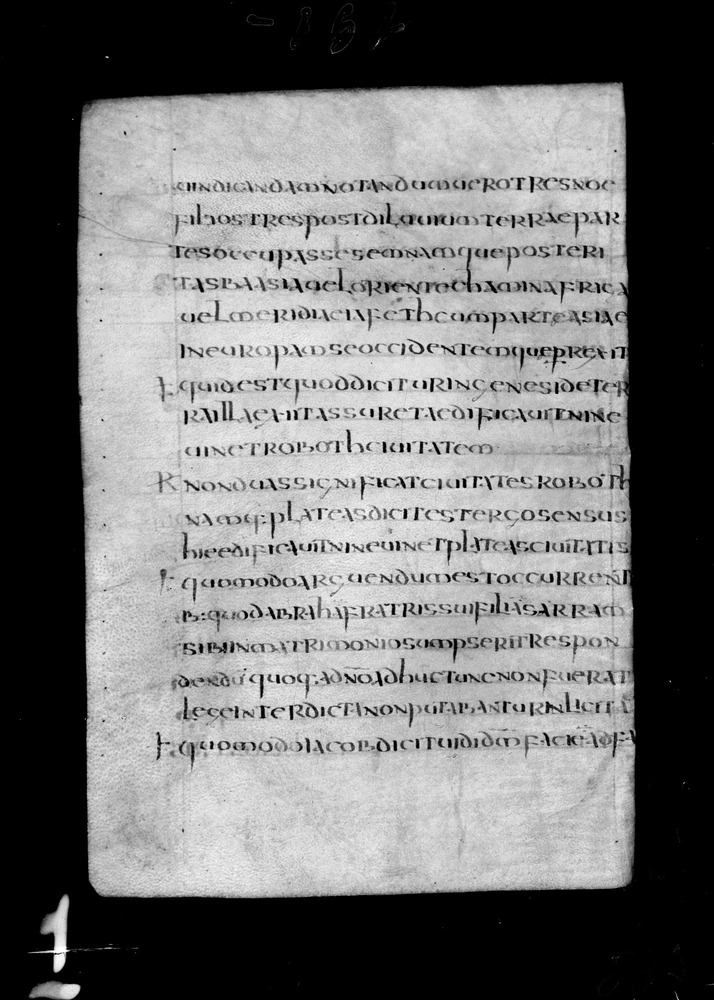 uindicandamnotandumuerotresnoe
filiostrespostdiluuiumterraepar
tesoccupassesemnamqueposteri
tasbaasiauelorientechaminafrica
uelmeridiaeiafethcumparteasiae
ineuropamseoccidentemqueprexit
quidestquoddicituringenesideter
raillaexiitassuretaedificauitnine
uinetrobothciuitatem
R nonduassignificatciuitatesroboth
namq:plateasdicitestergosensus
hiceedificauitnineuinetplateasciuitatis
quomodoarguendumestoccurrent
b:quodabrahafratrissuifiliasarram
sibiinmatrimoniosumpseritrespon
dendu quoq:adnoadhuctuncnonfuerat
legeinterdictanonputabanturinlicita
quomodoiacobdicituididmfacieadfa